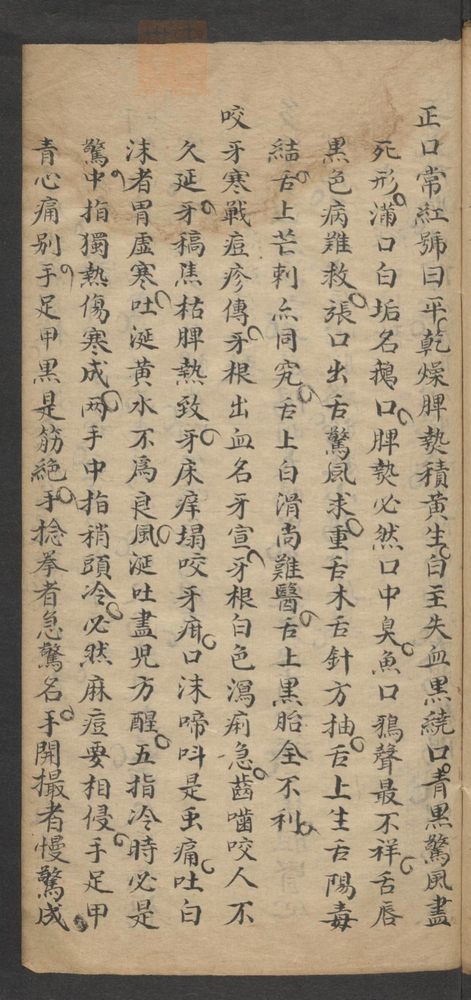 正口常紅號曰平乾燥脾熱積黃生白主失血黑繞口青黑驚風盡
死形滿口白垢名鵝口脾熱必然口中臭魚口鴉聲最不祥舌唇
黑色病難救張口出舌驚風求重舌木舌針方抽舌上生舌陽毒
結舌上芒刺亦同究舌上白滑尚難醫舌上黑胎全不利
咬牙寒戰痘疹傳牙根出血名牙宣牙根白色瀉痢急齒嚙咬人不
久延牙稿焦枯脾熱致牙床痒塌咬牙疳口沫啼呌是虫痛吐白
沫者胃虛寒吐涎黃水不爲良風涎吐盡児方醒五指冷時必是
驚中指獨熱傷寒成兩手中指稍頭冷必然麻痘要相侵手足甲
青心痛別手足甲黑是筋絕手捻拳者急驚名手開撮者慢驚成